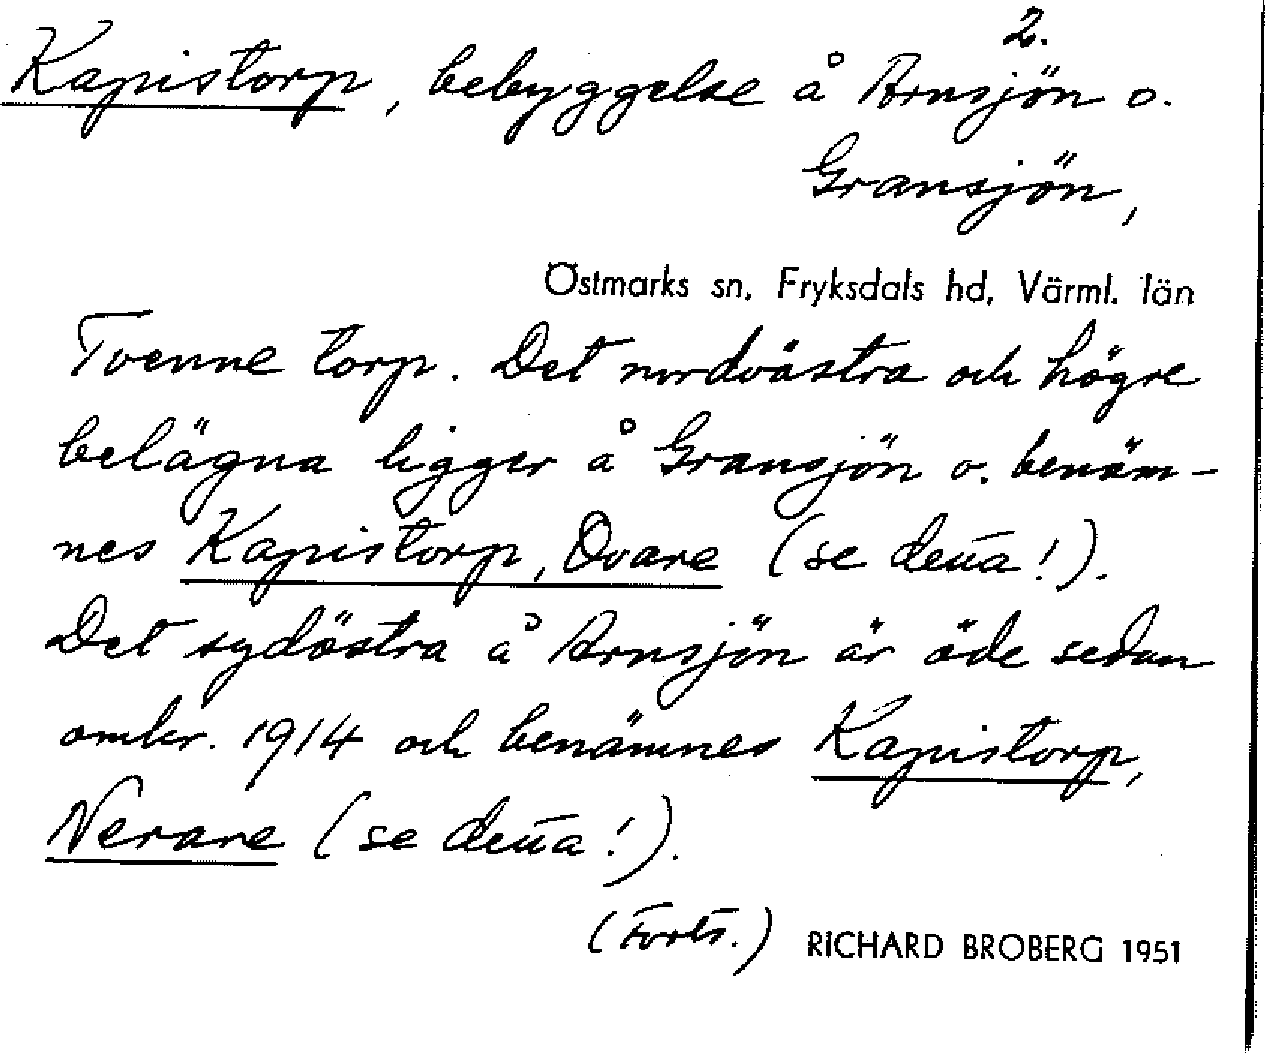 2.
Kapistorp, bebyggelse å Arnsjön o.
Gransjön,
Östmarks sn, Fryksdals hd, Värml. län
Tvenne torp. Det nordvästra och högre
belägna ligger å Gransjön o. benäm-
nes Kapistorp, Ovare (se deña!).
Det sydöstra å Arnsjön är öde sedan
omkr. 1914 och benämnes Kapistorp,
Nerare (se deña!).
(Forts.) RICHARD BROBERG 1951